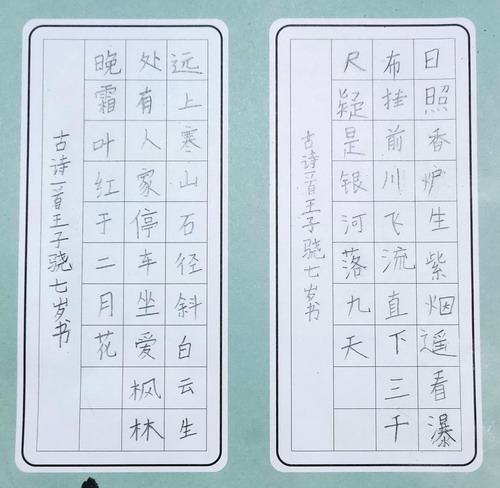 日照香炉生紫烟遥看瀑
布挂前川飞流直下三千
尺疑是银河落九天
古诗一首王子骁七岁书
远上寒山石径斜白云生
处有人家停车坐爱枫林
晚霜叶红于二月花
古诗一首王子骁七岁书